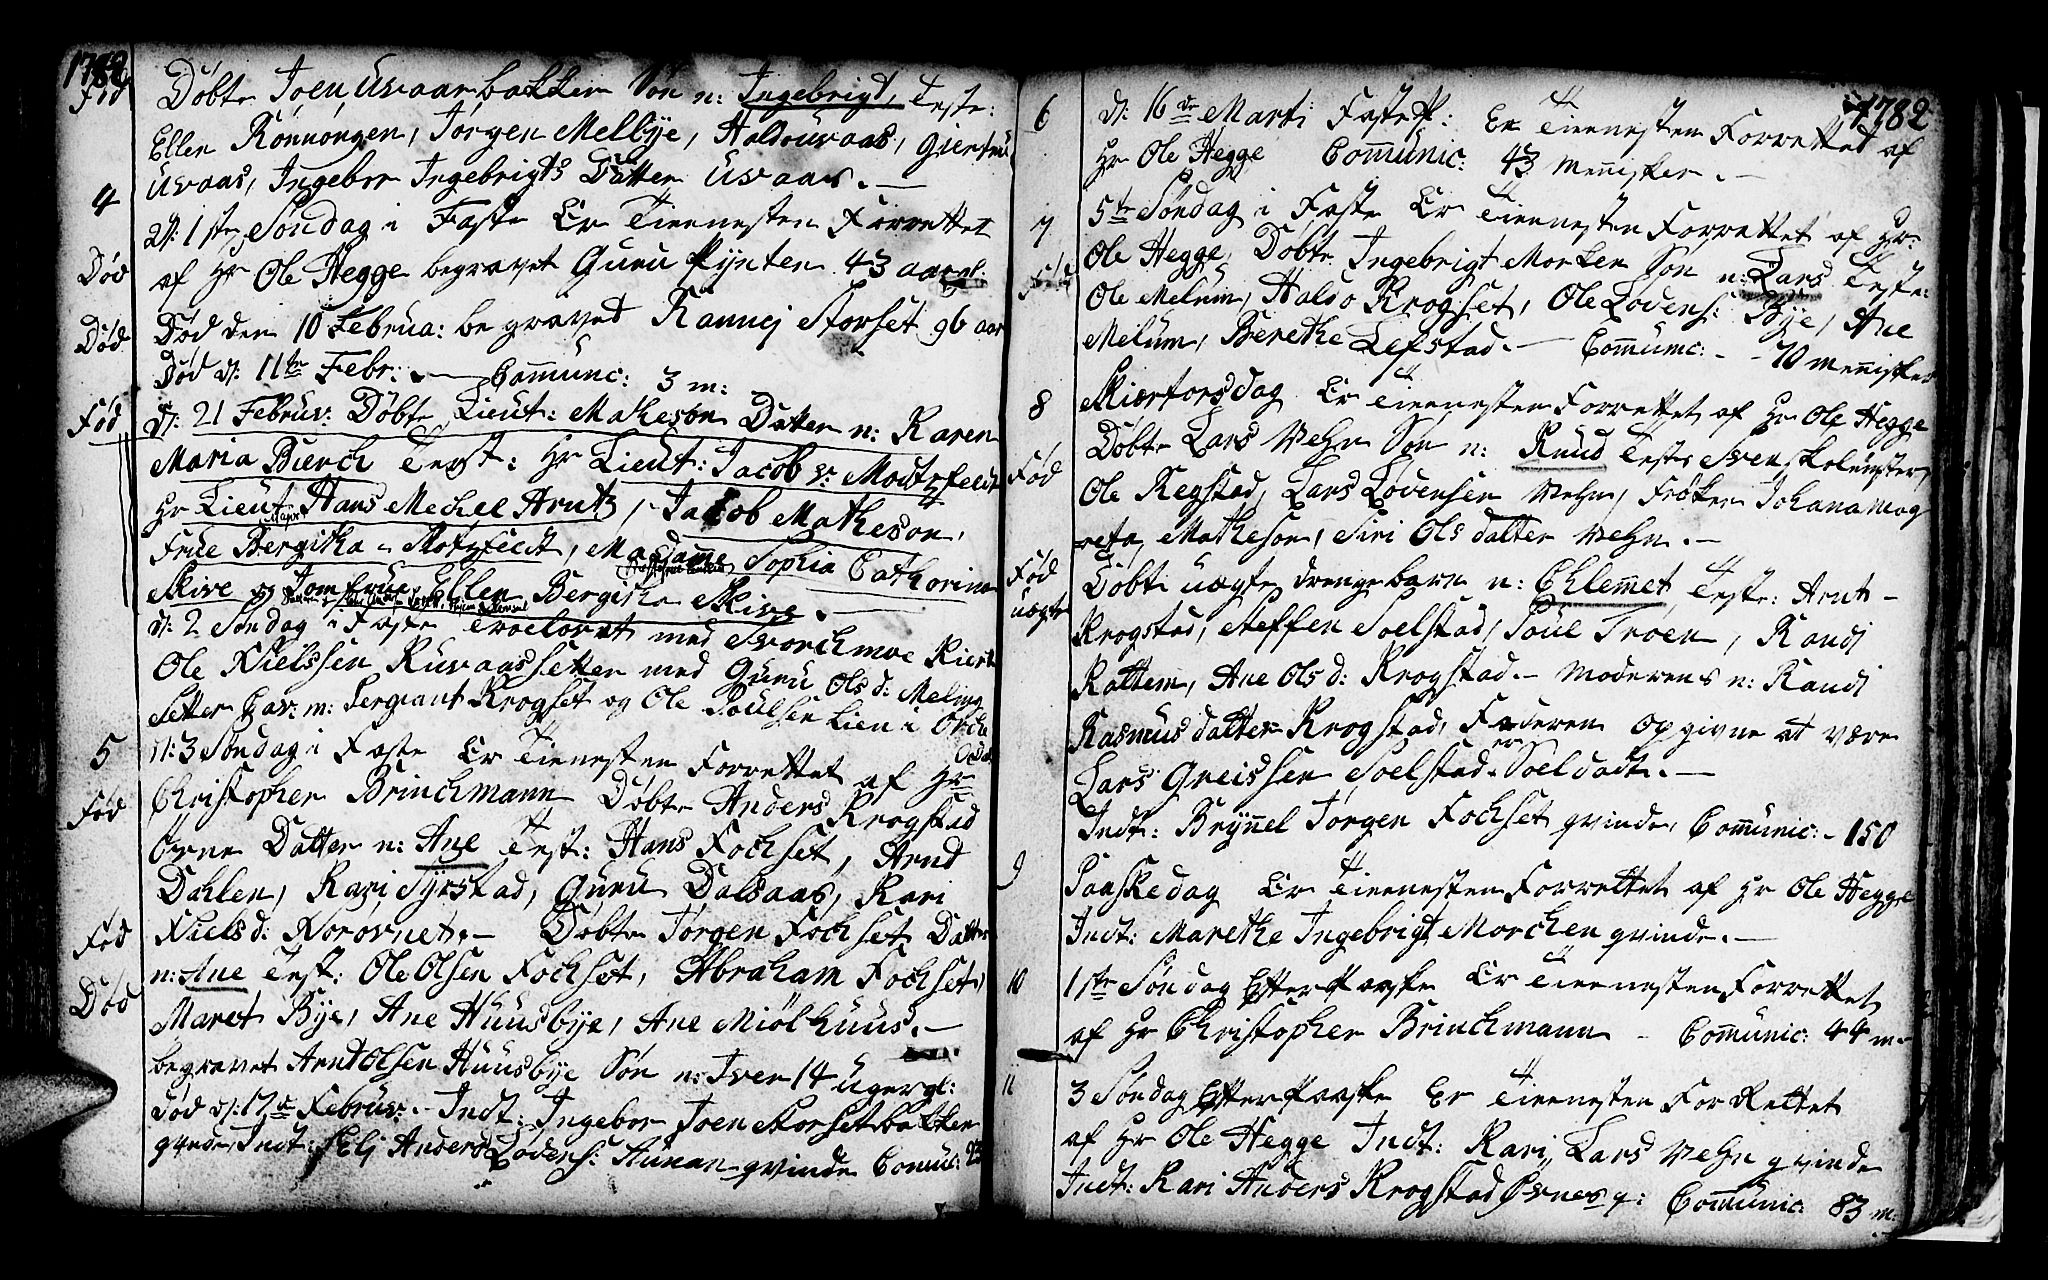 1782
Fød
Døbte Joen Uvaarbakken Søn n: Ingebrigt, Teste:
Ellen Rønnongen, Jørgen Melbye, Haldo Uvaas, Giertru
Uvaas, Ingebor Ingebrigts Datter Uvaas.
4
D: 1ste Søndag i Faste Er Tienesten Forrettet
Død
af Hr Ole Hegge begravet Guru Pynten 43 aar gl:
Død den 10 Februa: begraved Rannej Storset 96 aar
Død
Død d: 11te Febr: . Comunc: 3 m:
Fød
d: 21 Februv: Døbte Lieut: Matheson Datter n: Karen
Maria Bierch Test: Hr Lieut: Jacob v: Motzfeldt
Hr Lieut Hans Mechel Arntz, Jacob Matheson,
Frue Major Bergitha Motzfeldt, Madame Sophia Catharina
Skive og Jomfrue Ellen Bergitha Skive.
d: 2 Søndag i Faste Troelovet med
Ole Nielssen Ruvaassetter med Guru Olsd: Meling
Setter Cav: m: Sergiant Krogset og Ole Poulsen Lien i Orche
dal
5
d: 3 Søndag i Faste Er Tienesten Forrettet af Hr
Fød
Christopher Brinchmann Døbte Anders Krogstad
Øvne Datter n: Ane Test: Hans Fochset, Arnt
Dahlen, Kari Syrstad, Guru Dalsaas, Kari
Fød
Nielsd: Norøvnet. Døbte Jørgen Fochset Datter
n: Ane Test: Ole Olsen Fochset, Abraham Fochset,
Død
Maret Bye, Ane Huusbye, Ane Miølhuus.
begravet Arnt Olsen Huusbye Søn n: Iver 14 Uger gl:
Død d: 17de Februv: Indt: Ingebor Joen Storsetbakken
qvinde, Indt: Elj Anders Lodens: Aunan qvinde Comun:
1782
6
d: 16de Marti Fastepr: Er Tienesten Forrettet af
Hr Ole Hegge Comunic: 43 Menisker.
7
5te Søndag i Faste Er Tienesten Forrettet af Hr:
Fød
Ole Hegge, Døbte Ingebrigt Morken Søn n: Lars Teste:
Ole Melum, Haldo Krogset, Ole Lodens: Bye, Ane
Melum, Berethe Lefstad. Comunic: 70 menisker
8
Skiertorsdag Er Tienesten Forrettet af Hr Ole Hegge
Fød
Døbte Lars Vehn Søn n: Knud Teste Sven Skolemster,
Ole Regstad, Lars Lodensen Vehn, Frøken Johana Mag
reta Matheson, Siri Olsdatter Vehn.
Fød
uegte
Døbte uægte drengebarn n: Chlemmet Teste: Arnt
Krogstad, Steffen Soelstad, Poul Troen, Randj
Rattem, Ane Olsd: Krogstad. Moderens n: Randj
Rasmusdatter Krogstad, Faderen opgivne at være
Lars Greissen Soelstad er Soeldadt.
Indt: Brynnel Jørgen Fochset qvinde, Comunic: 150
9
Paaskedag Er Tienesten Forrettet af Hr Ole Hegge
Indt: Marethe Ingebrigt Morchen qvinde.
10
1ste Søndag Efter Paaske Er Tienesten Forrettet
af Hr Christopher Brinchmann Comunic: 44 m
11
3 Søndag Efter Paaske Er Tienesten Forrettet
af Hr Ole Hegge Indt: Kari Lars Vehn qvinde
Indt: Kari Anders Krogstad Øvnes q: Comunic: 83 m: